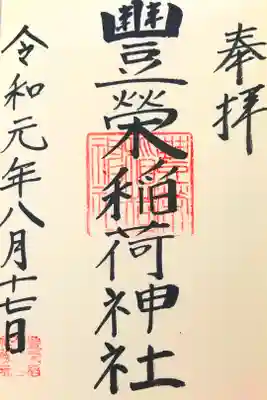 奉拝
豐榮稲荷神社
令和元年八月十七日